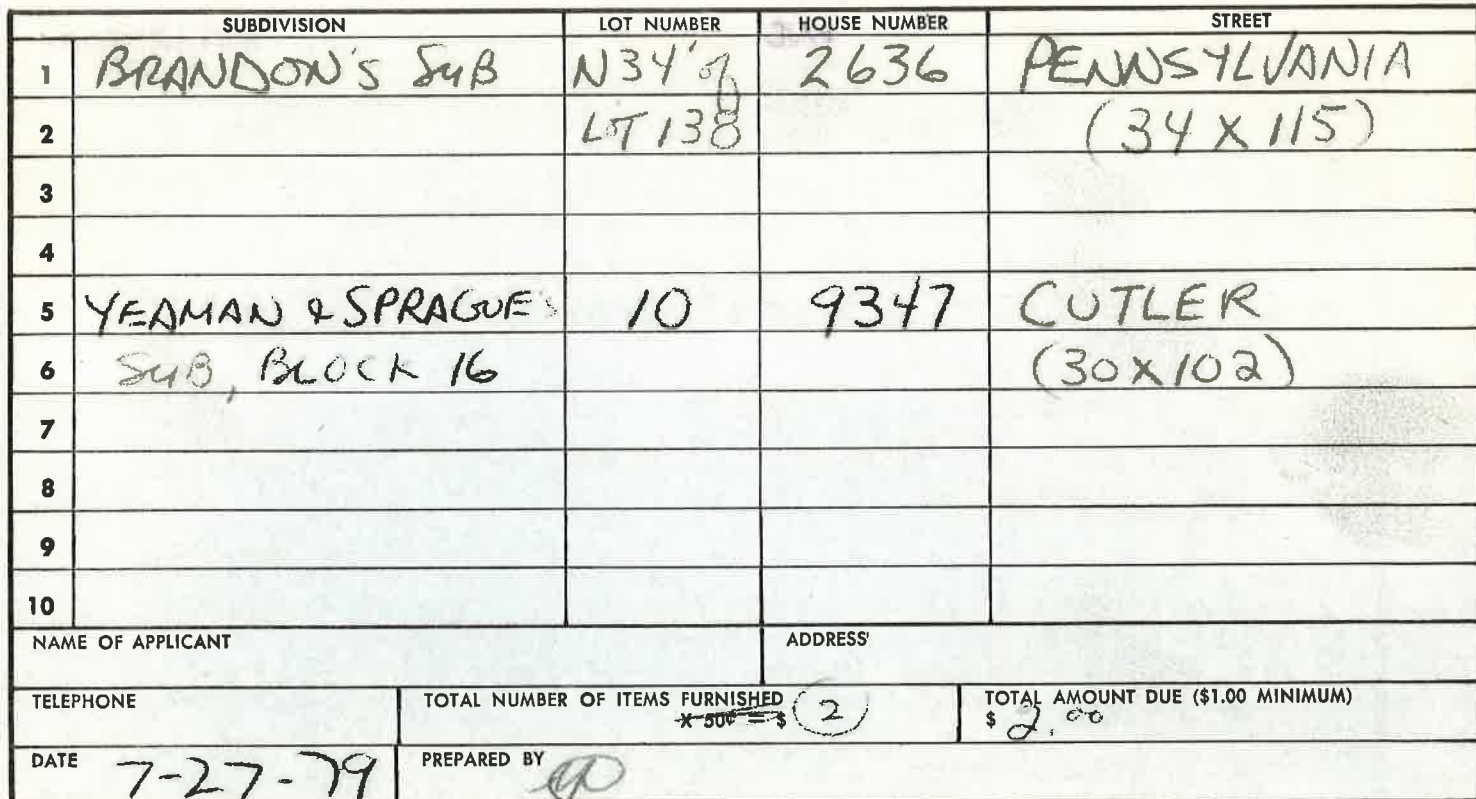 SUBDIVISION LOT NUMBER HOUSE NUMBER STREET
1 BRANDON'S SUB N 34' of 2636 PENNSYLVANIA
2 LOT 138 (34 X 115)
3
4
5 YEAMAN & SPRAGUE 10 9347 CUTLER
6 SUB, BLOCK 16 (30 X 102)
7
8
9
10
NAME OF APPLICANT ADDRESS
TELEPHONE TOTAL NUMBER OF ITEMS FURNISHED TOTAL AMOUNT DUE ($1.00 MINIMUM)
X 50¢ = $ 2 $ 2.00
DATE 7-27-79 PREPARED BY